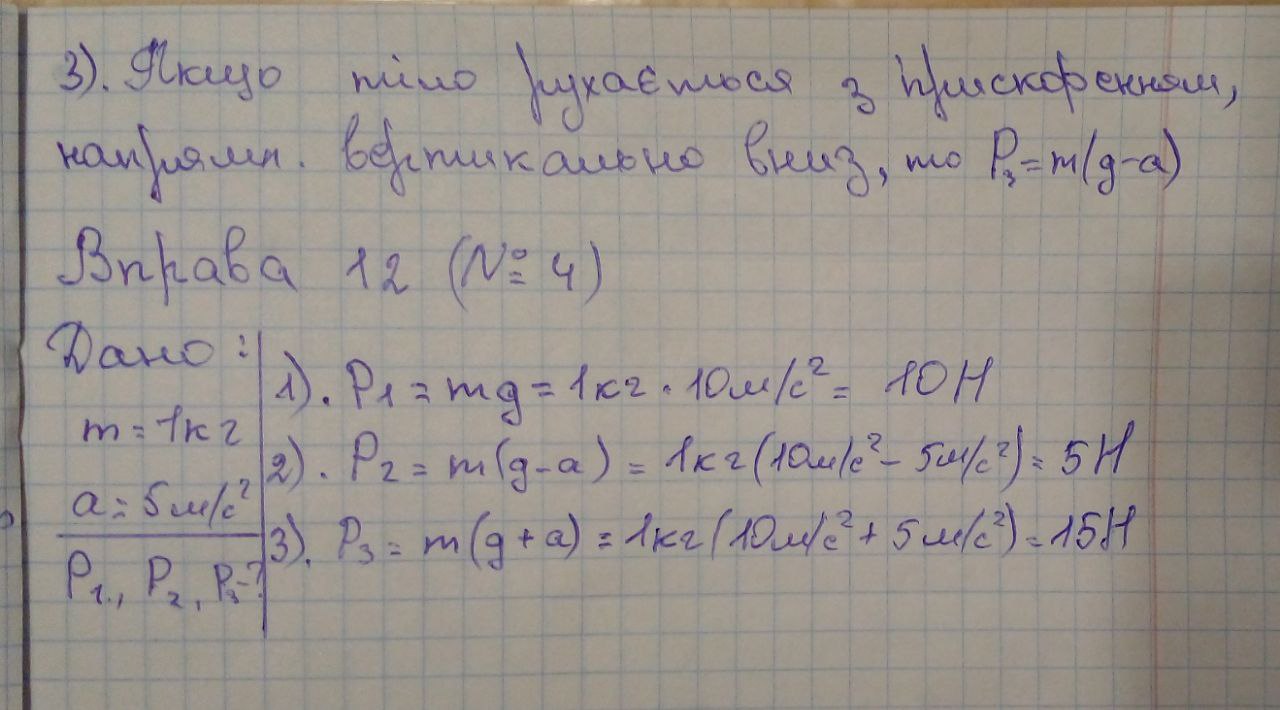 3). Якщо тіло рухається з прискоренням,
напрямл. вертикально вниз, то P₃=m(g-a)
Вправа 12 (№ 4)
Дано:
m=1кг
a=5м/с²
P₁., P₂, P₃-?
1). P₁=mg=1кг·10м/с²= 10Н
2). P₂=m(g-a)=1кг(10м/с²-5м/с²)=5Н
3). P₃=m(g+a)=1кг(10м/с²+5м/с²)=15Н